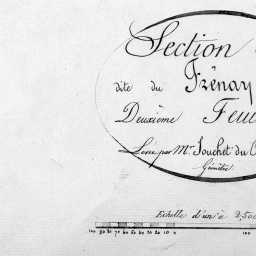 Section
dite du Frênay
Deuxième Feui
Levée par Mr. Souchet du
Géomètre
Echelle d'un à 2,500
100 90 80 70 60 50 40 30 20 10 0 100